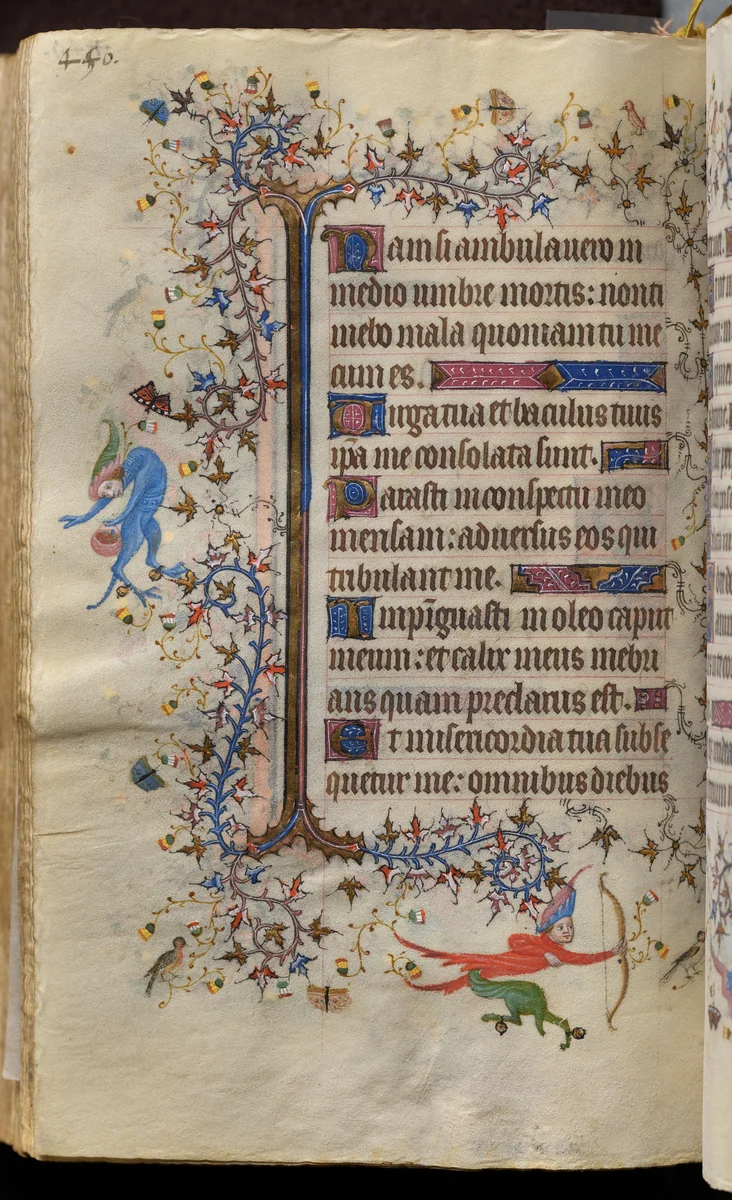 450.
Nam si ambulavero in
medio umbre mortis: non ti
mebo mala quoniam tu me
cum es.
Virga tua et baculus tuus
ip̄a me consolata sunt.
Parasti in conspectu meo
mensam: adversus eos qui
tribulant me.
Impīguasti in oleo caput
meum: et calix meus inebri
ans quam preclarus est.
Et misericordia tua subse
quetur me: omnibus diebus